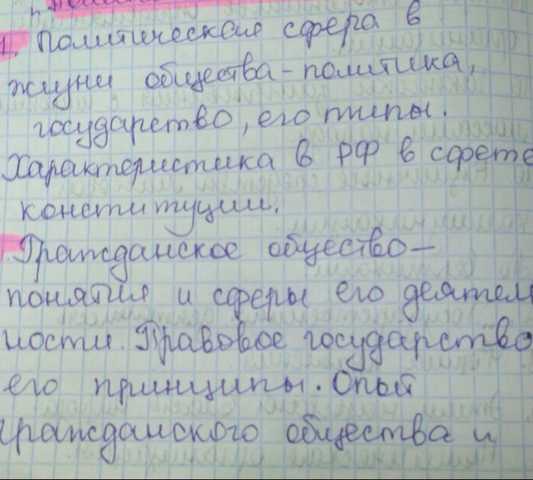 1. Политическая сфера в
жизни общества - политика,
государство, его типы.
Характеристика в РФ в сфете
конституции.
Гражданское общество -
понятия и сферы его деятель
ности. Правовое государство
его принципы. Опыт
гражданского общества и